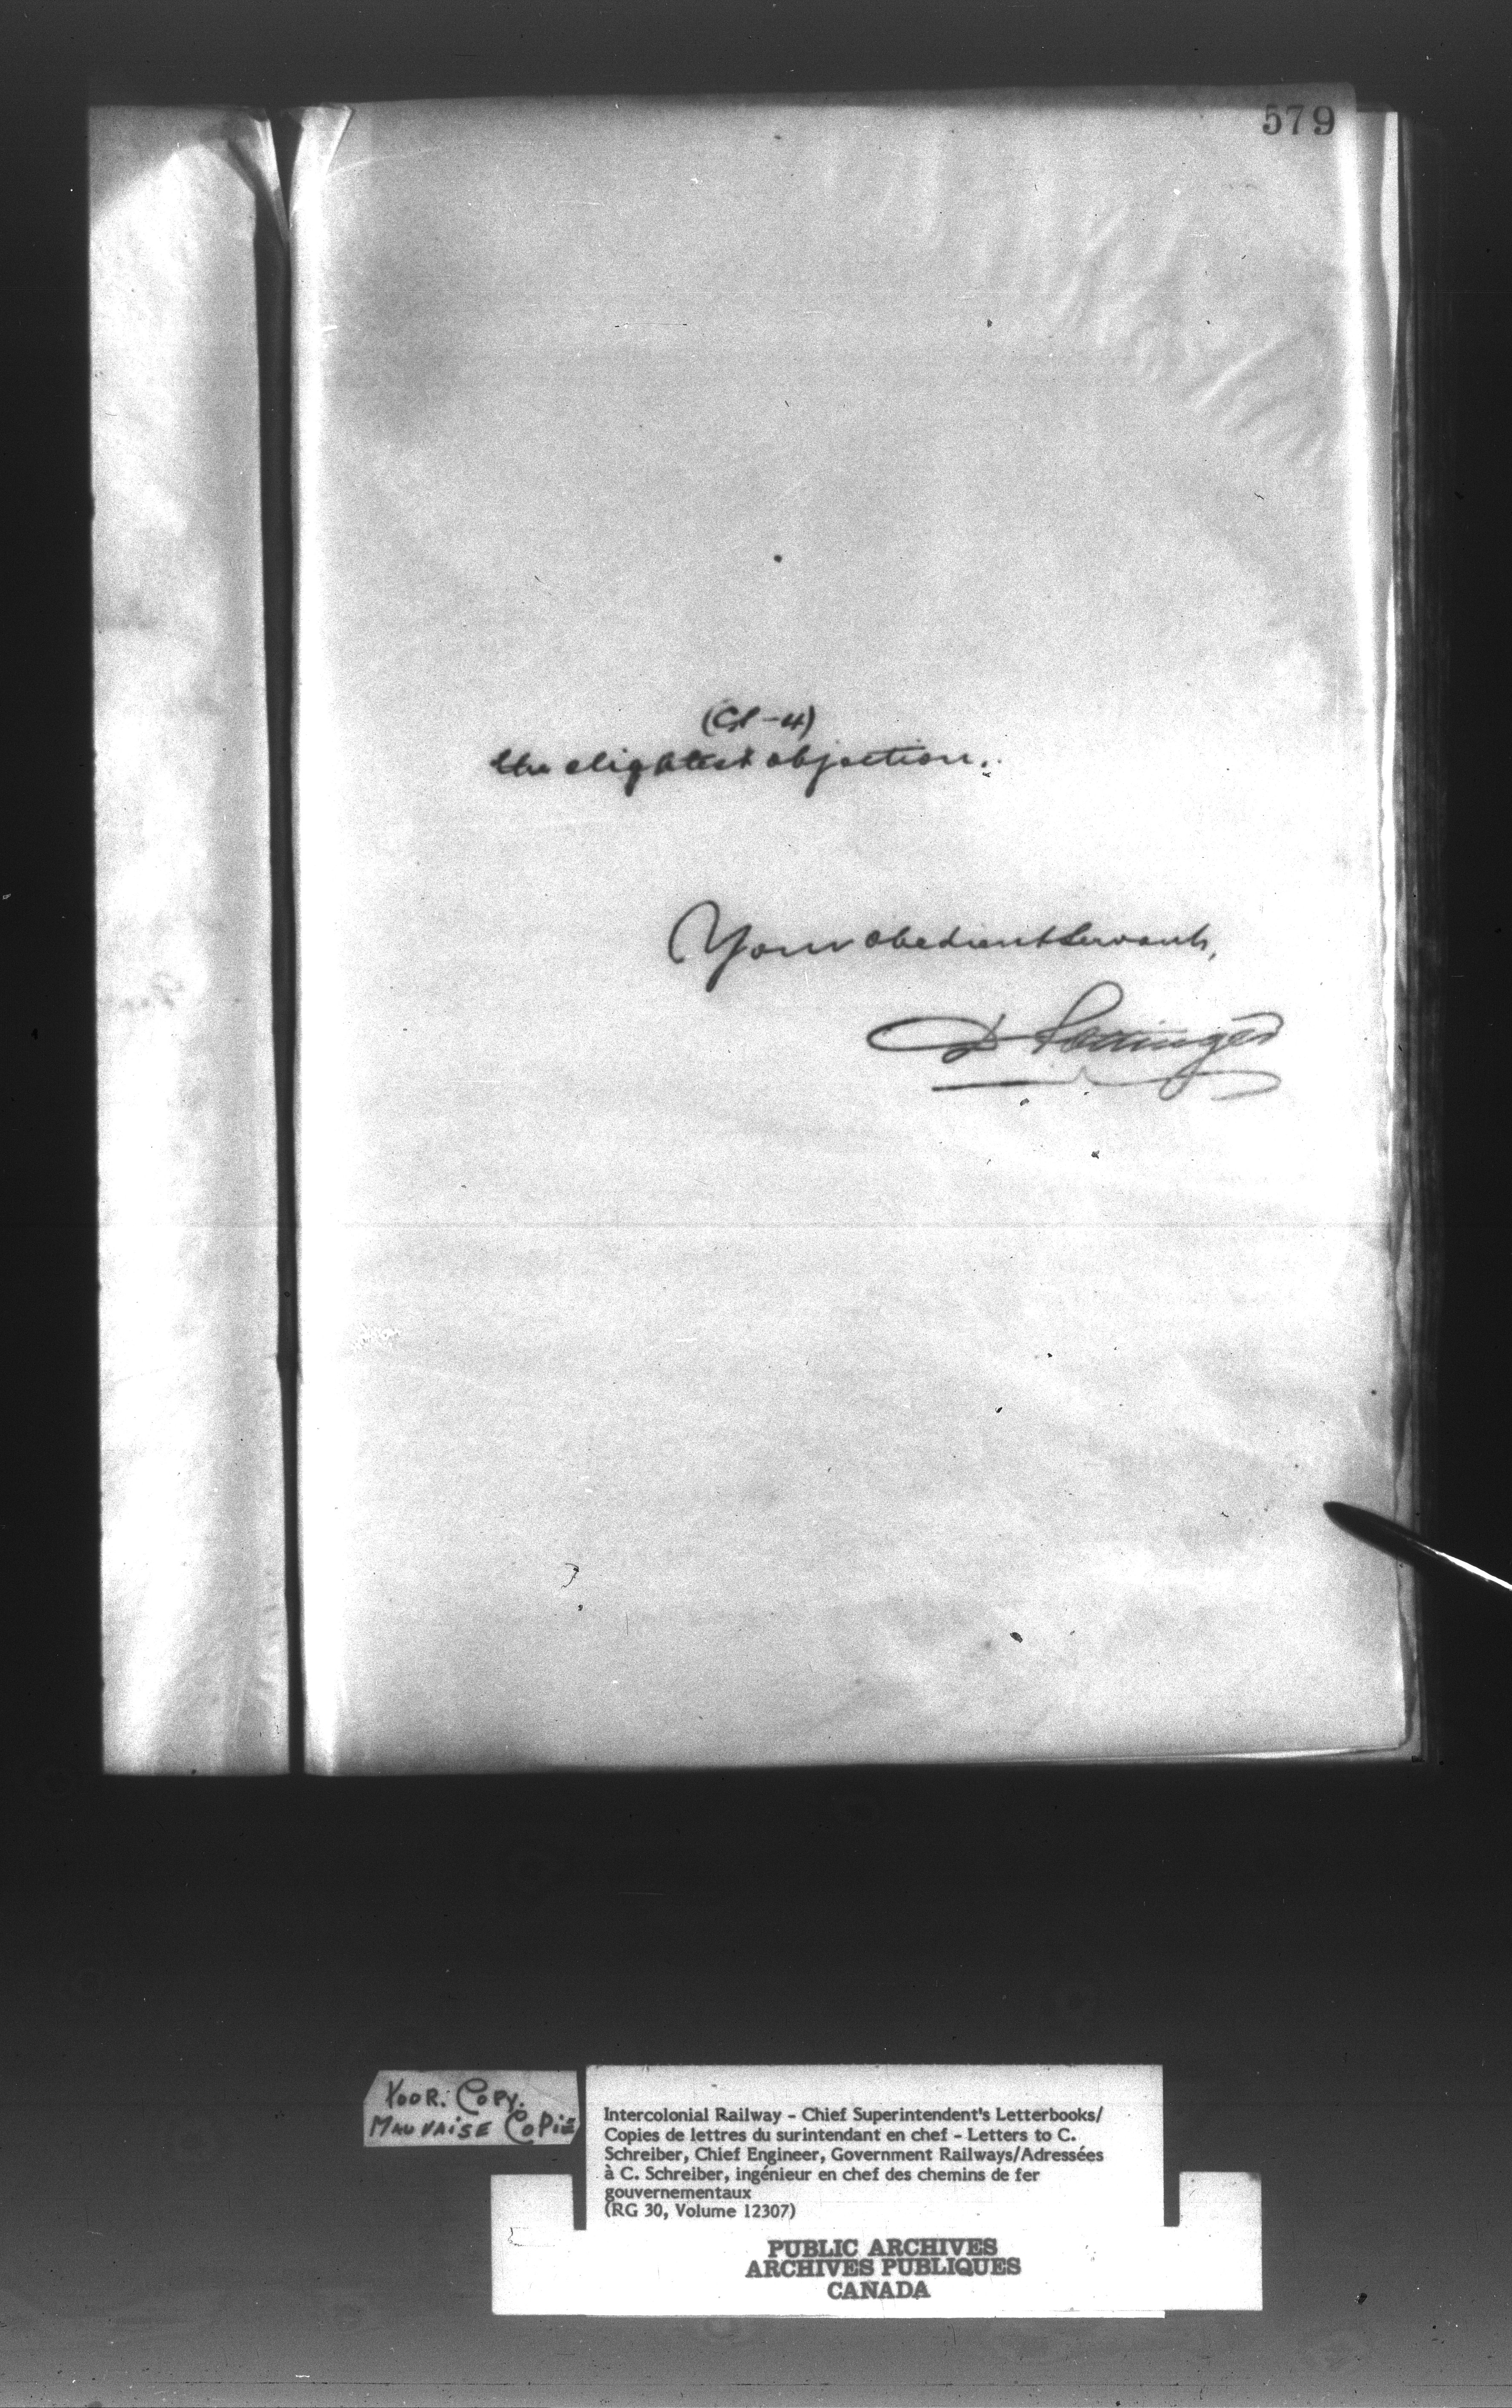 579
the slightest objection.
Your obedient Servant,
D Pottinger
POOR. COPY.
MAUVAISE COPiE
Intercolonial Railway - Chief Superintendent's Letterbooks/
Copies de lettres du surintendant en chef - Letters to C.
Schreiber, Chief Engineer, Government Railways/Adressées
à C. Schreiber, ingénieur en chef des chemins de fer
gouvernementaux
(RG 30, Volume 12307)
PUBLIC ARCHIVES
ARCHIVES PUBLIQUES
CANADA